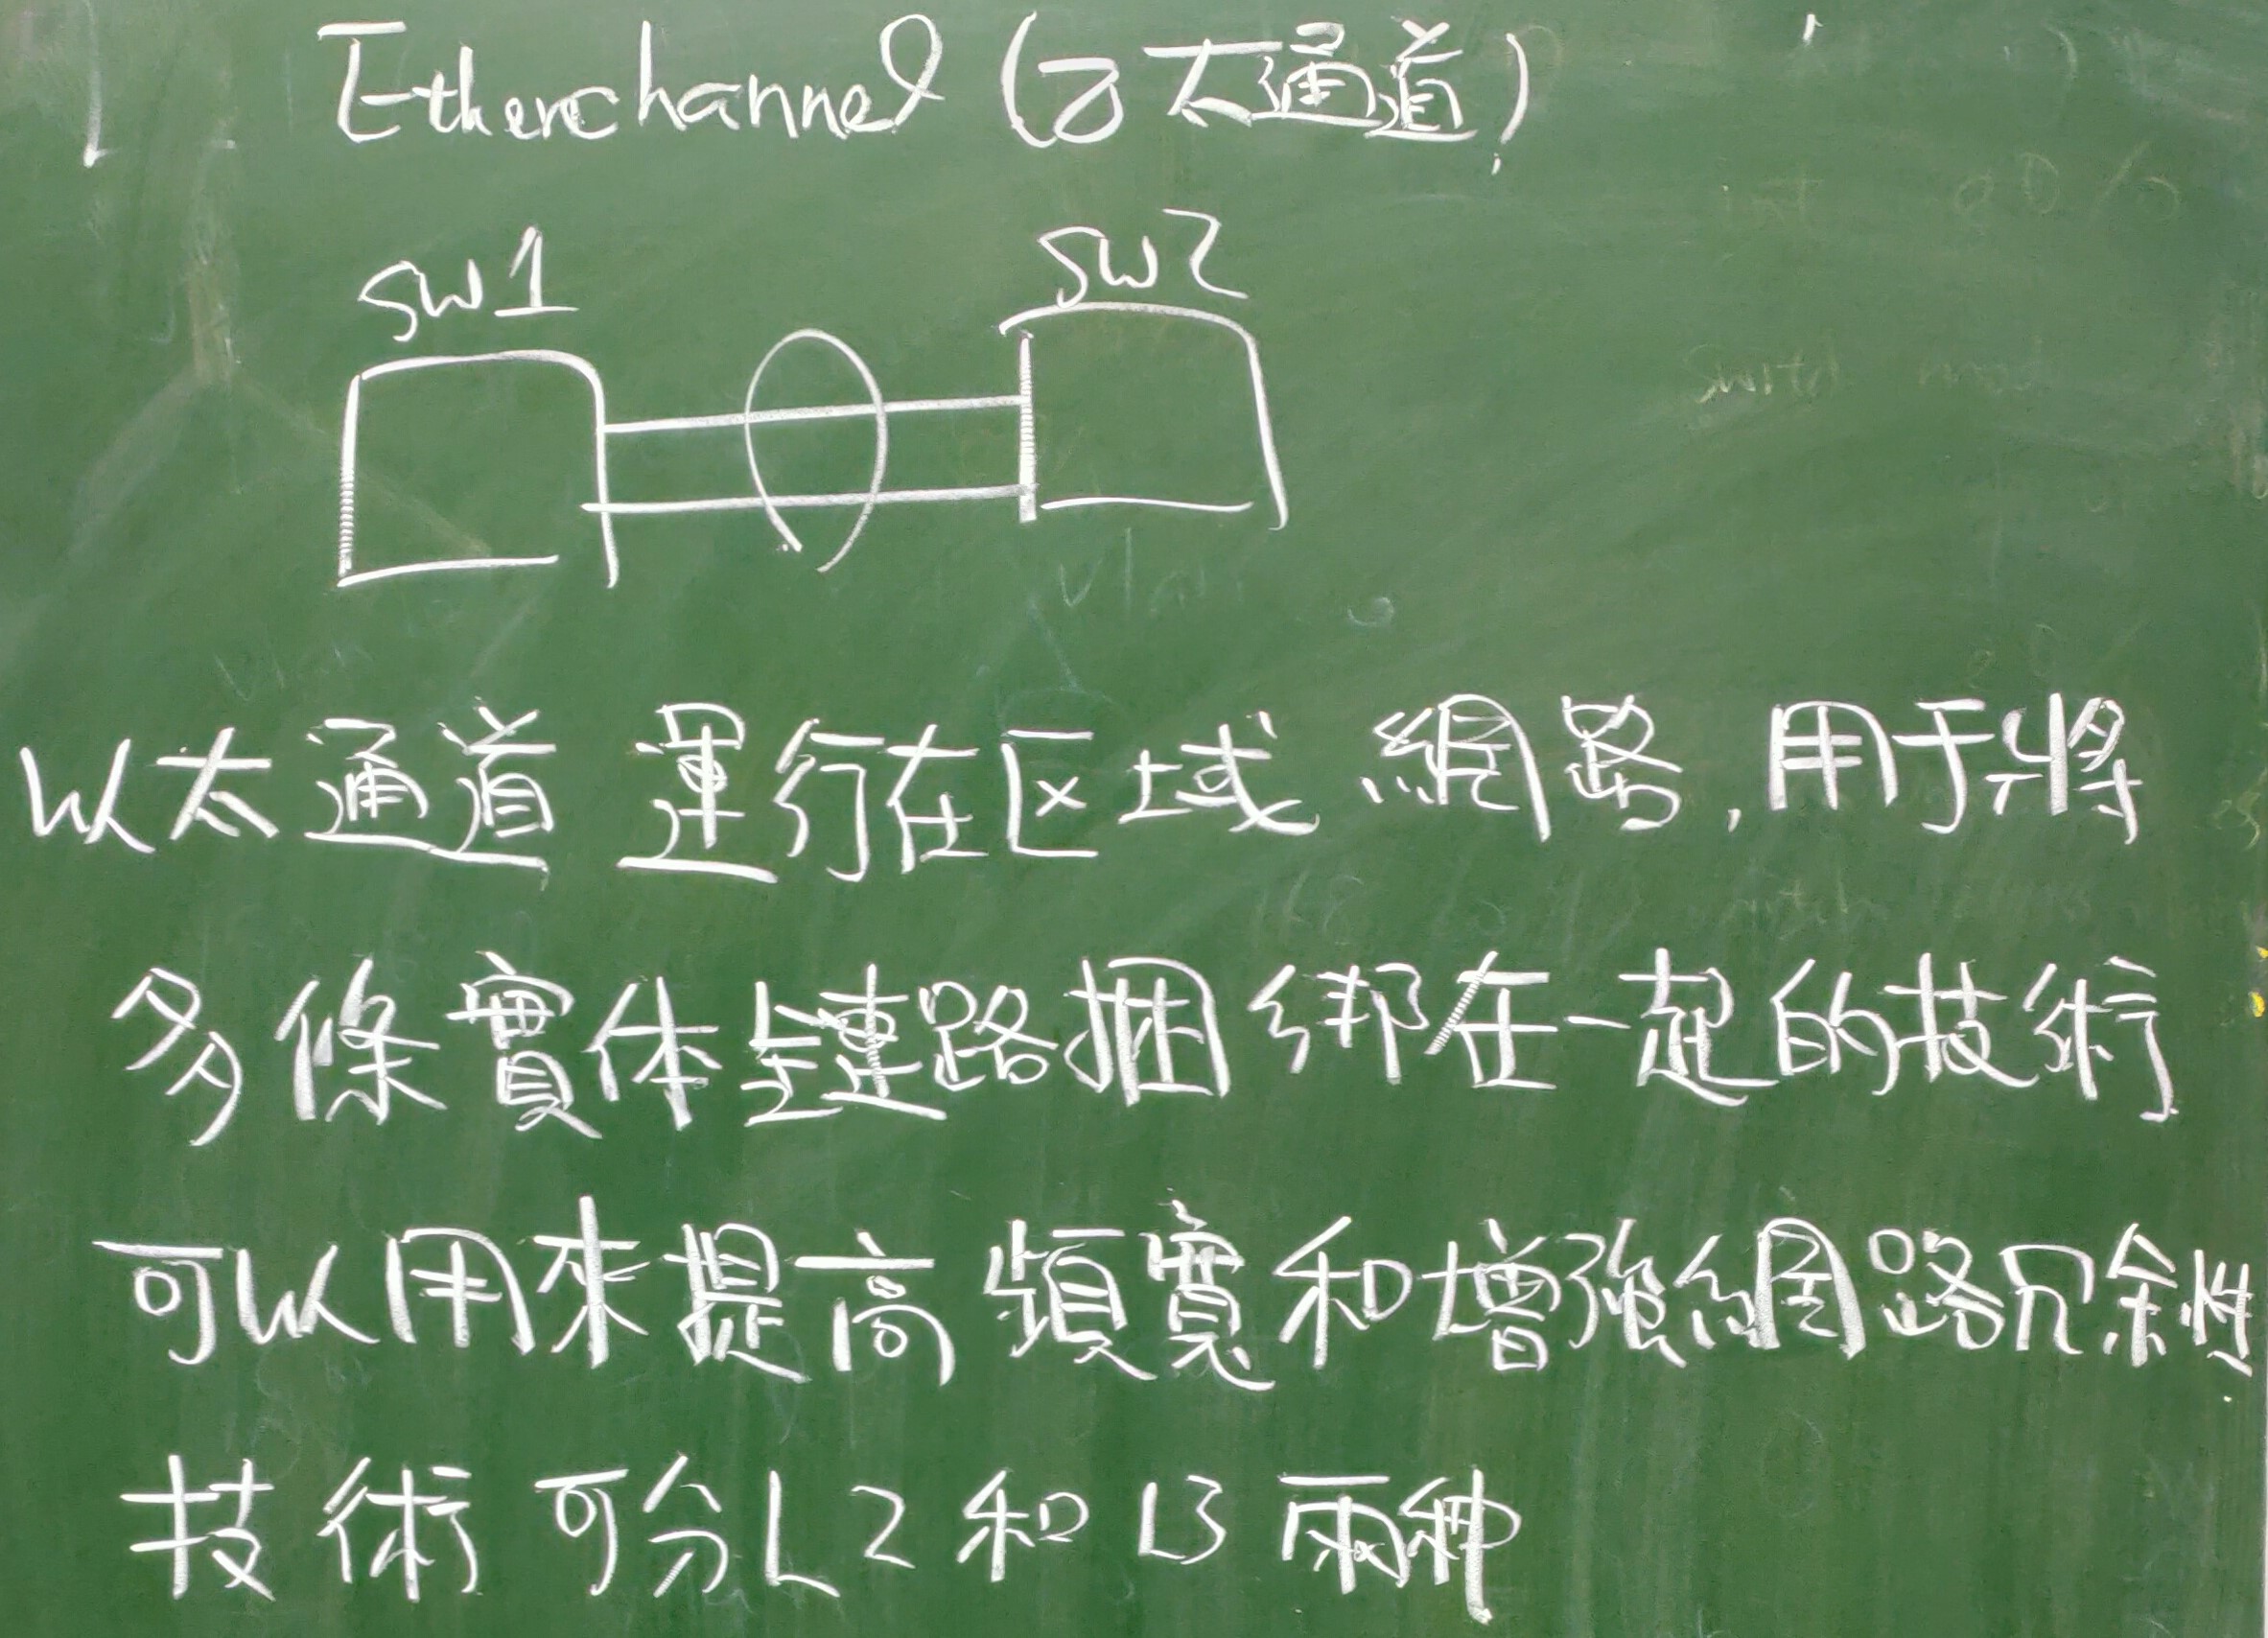 Etherchannel (乙太通道)
SW1
SW2
以太通道 運行在区域 網路, 用于將
多條實体鏈路捆綁在一起的技術
可以用來提高頻寬和增強網路冗余性
技術可分L2和L3兩种